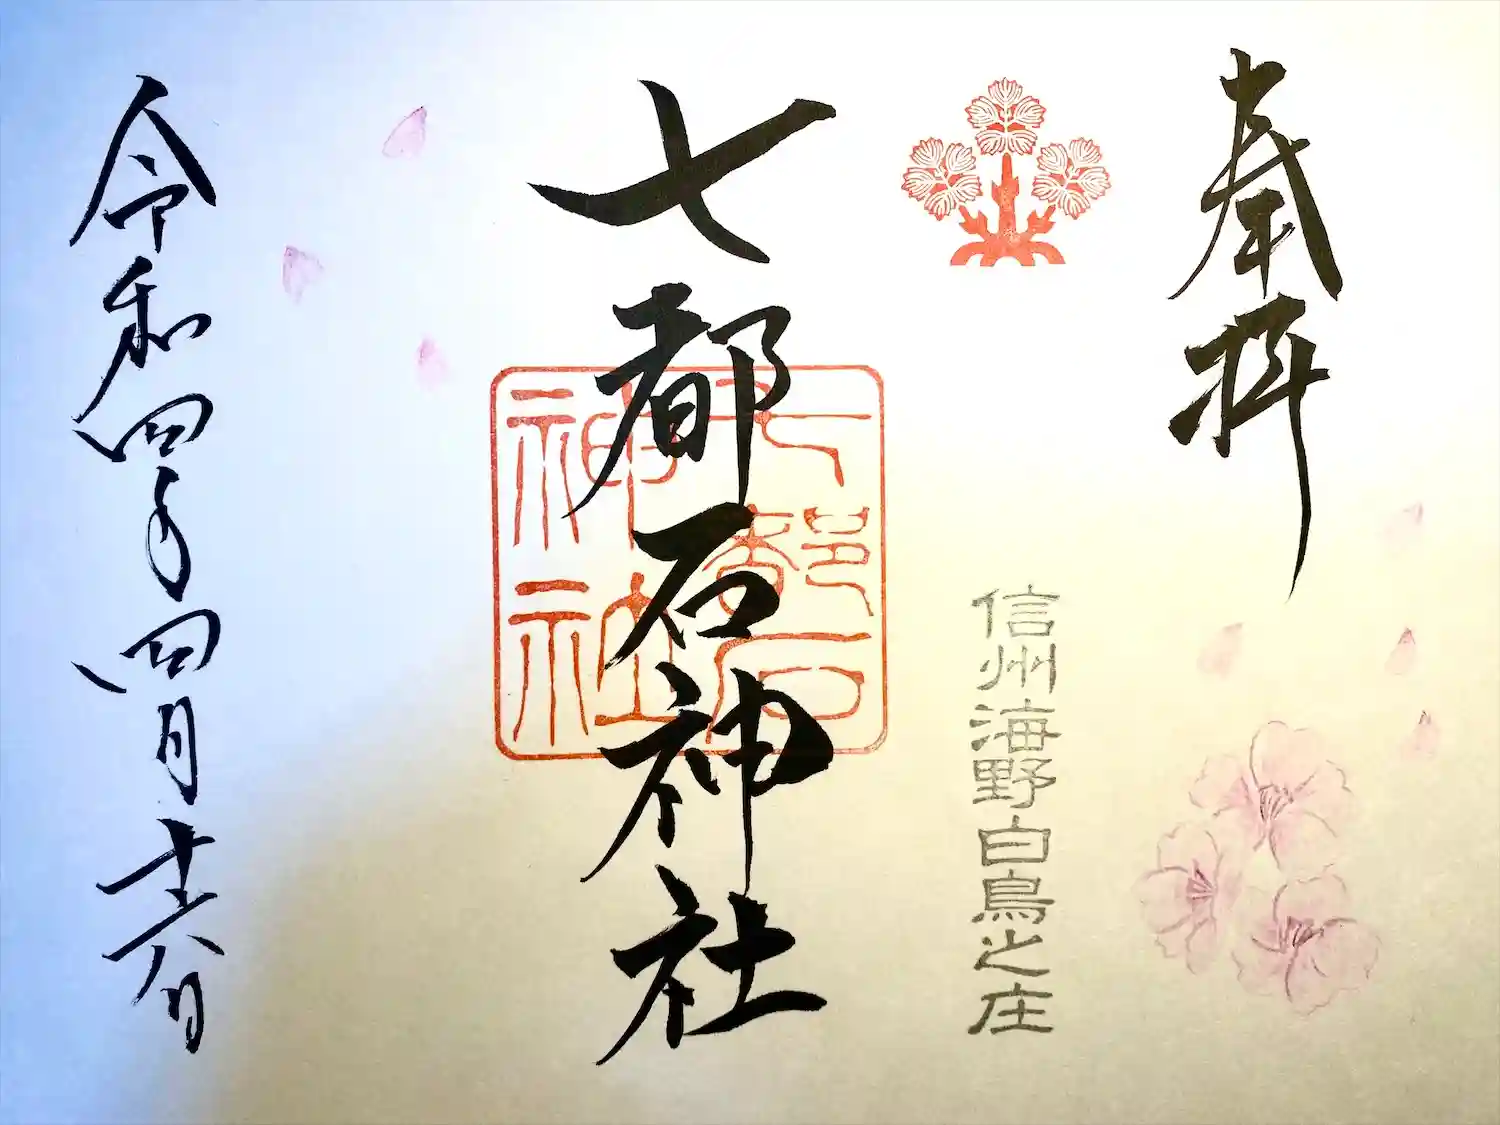 奉拝
信州海野白鳥之庄
七都石神社
七都石
神社
令和四年四月十六日